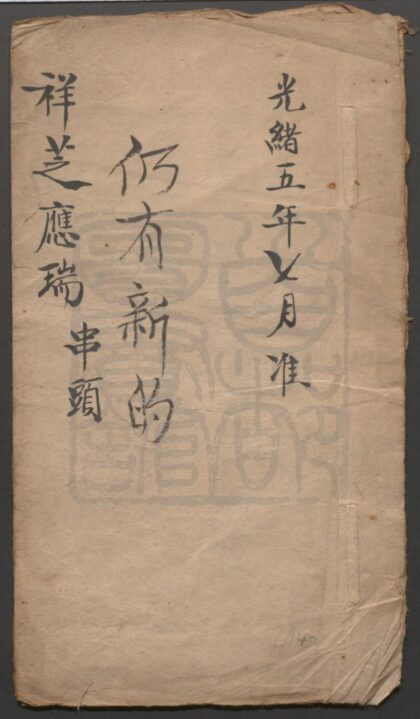 光緒五年七月准
仍有新的
祥芝應瑞 串頭